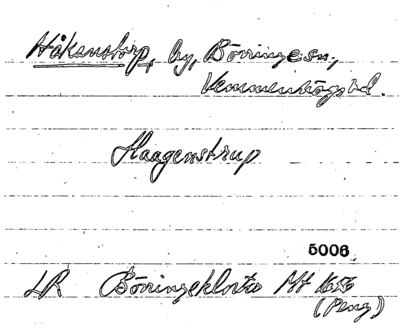 Håkenstorp, by, Börringe sn,
Vemmenhögs hd.
Haagenstrup
5006
LR Börringekloster Mt 1656
(Peng)